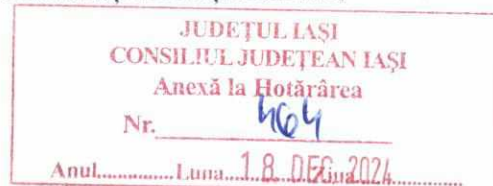 JUDEȚUL IAȘI
CONSILIUL JUDEȚEAN IAȘI
Anexă la Hotărârea
Nr. 464
Anul.............. Luna..18. DEC. 2024..............